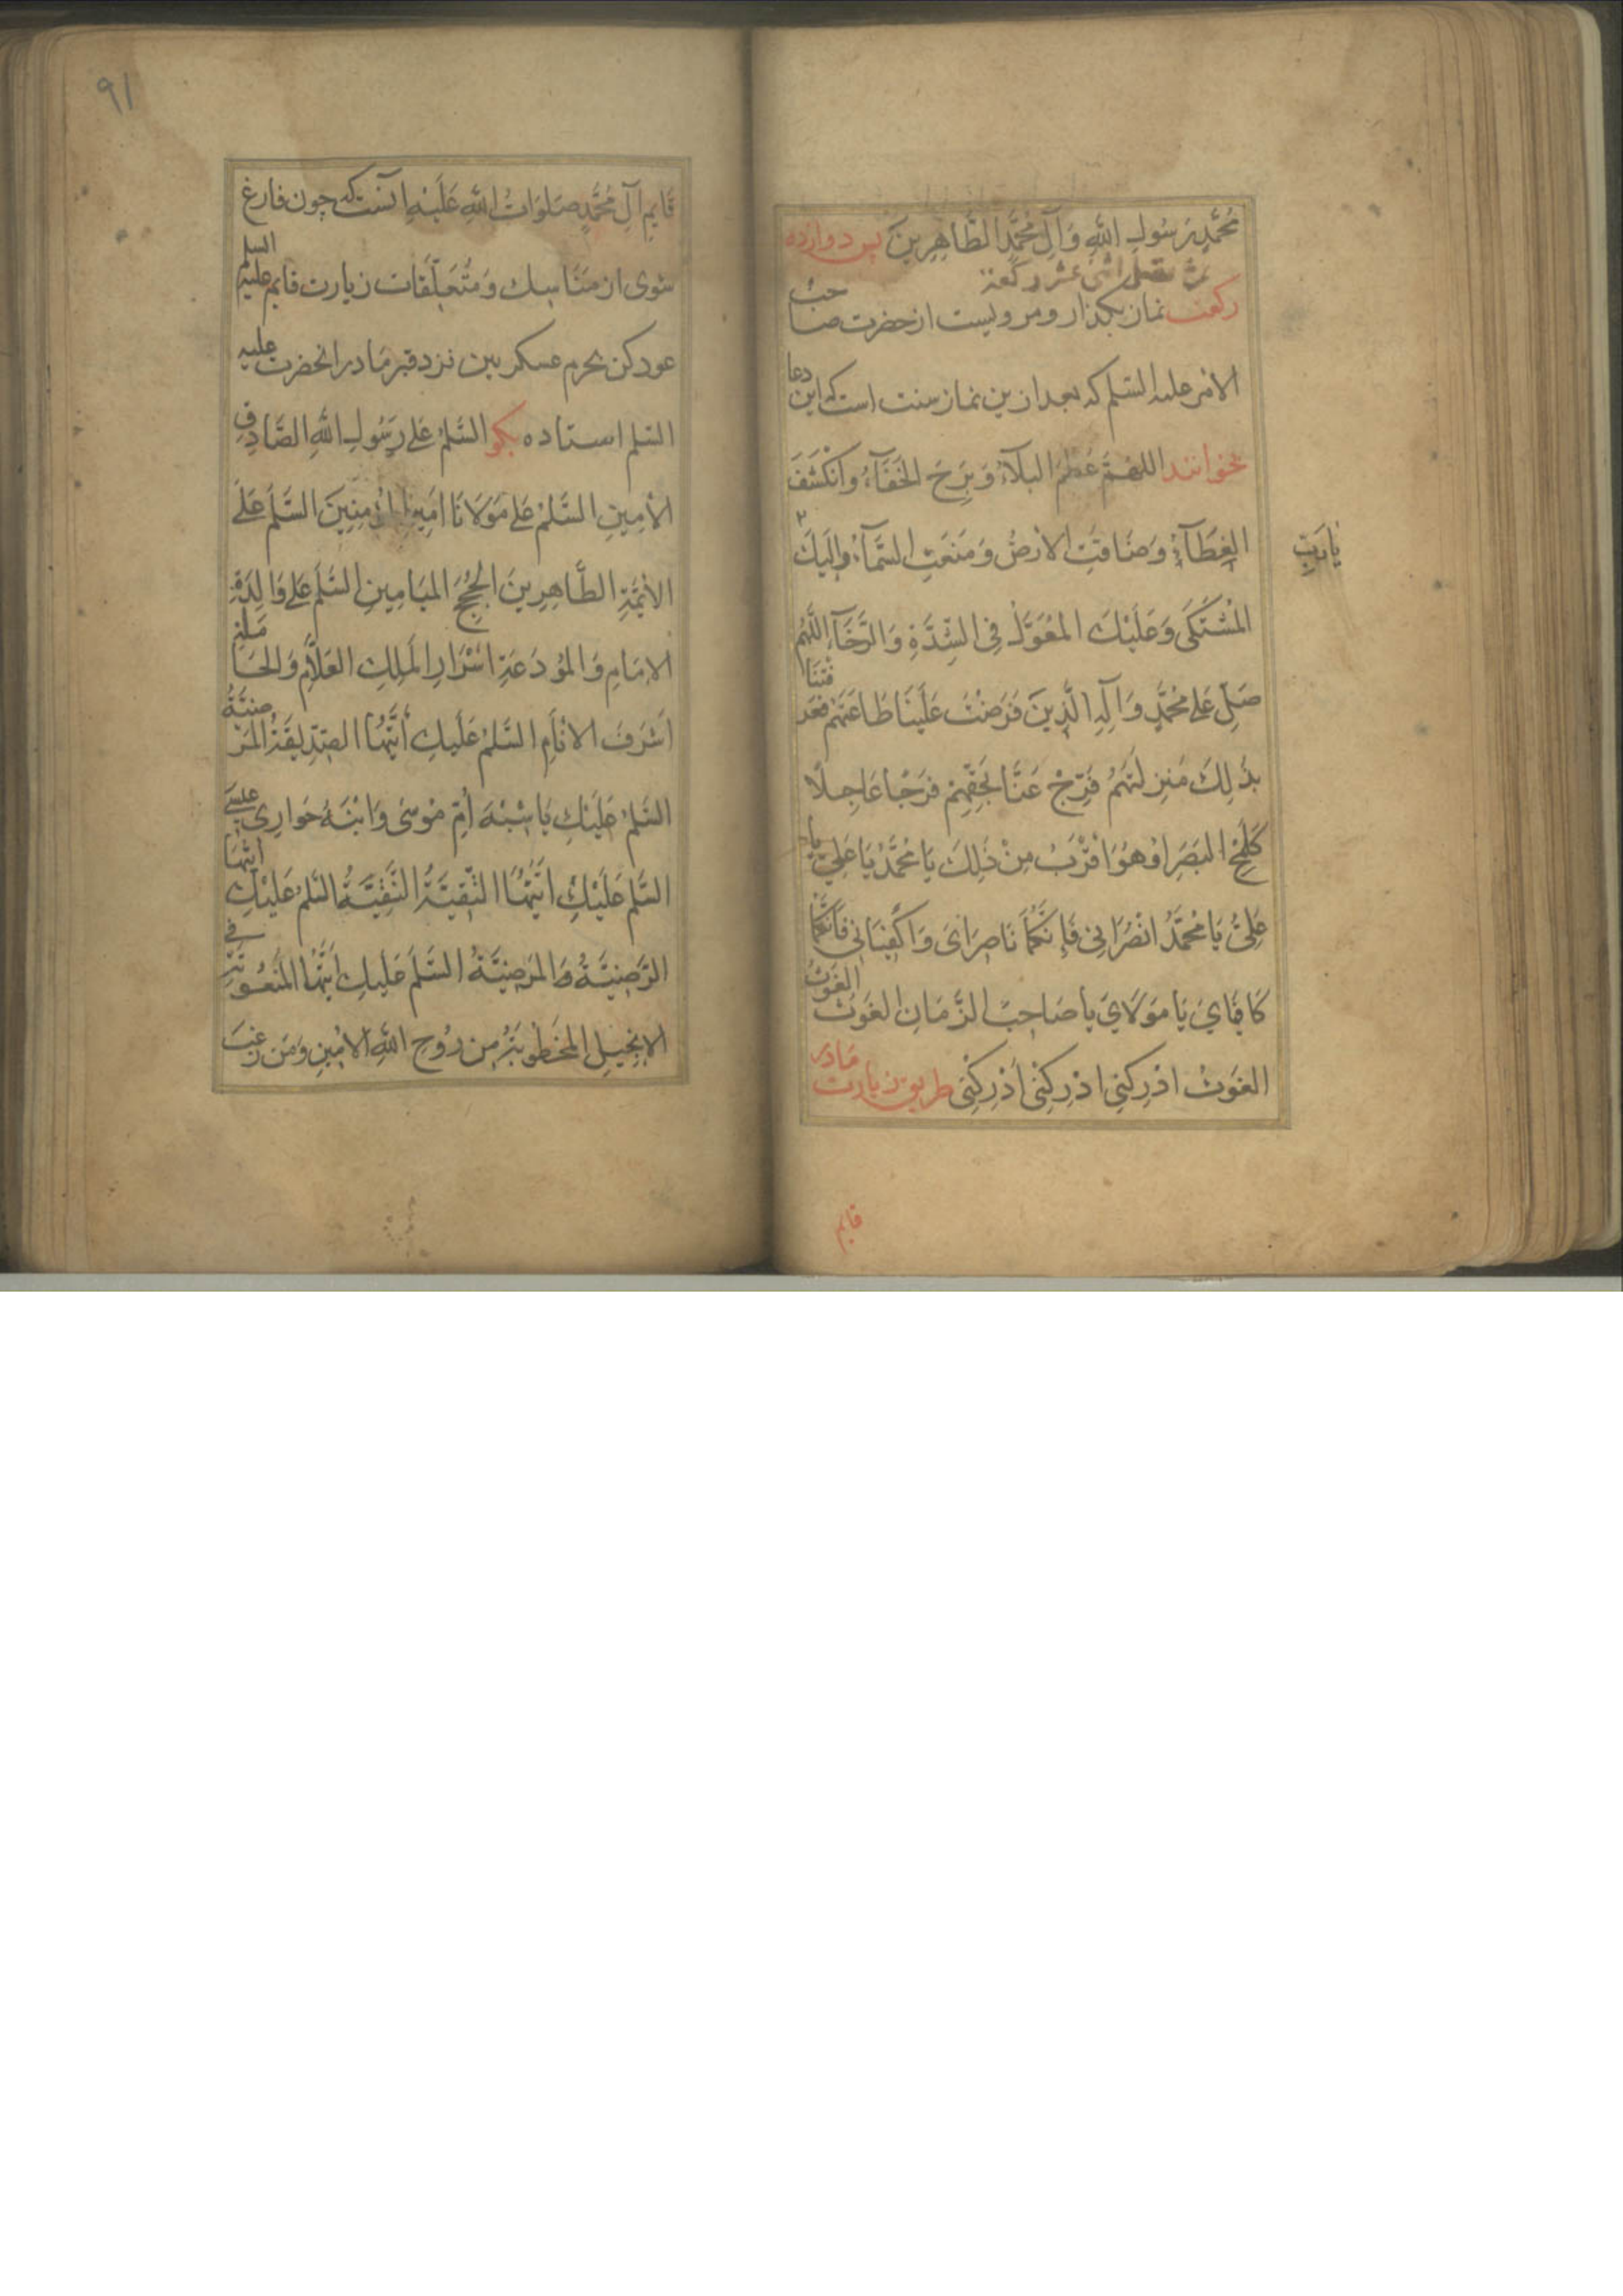 مُحَمَّدٍ رَسُولِ اللهِ وَآلِ مُحَمَّدٍ الطَّاهِرِينَ پس دوازده
ثم تصلی اثنی عشر رکعة
رکعت نماز بکذار و مرویست از حضرت صاحب
الامر علیه السلم که بعد ازین نماز سنت است که این دعا
بخوانند اللهُمَّ عَظُمَ البَلَآءُ وَبَرِحَ الخَفَآءُ وَانْكَشَفَ
الغِطَآءُ وَضَاقَتِ الاَرْضُ وَمَنَعَتِ السَّمَآءُ وَاِلَيكَ
يَارَبِّ
المُشْتَكَى وَعَلَيْكَ المُعَوَّلُ فِي الشِّدَّةِ وَالرَّخَآءِ اللَّهُمَّ
صَلِّ عَلى مُحَمَّدٍ وَآلِهِ الَّذِينَ فَرَضْتَ عَلَيْنَا طَاعَتَهُمْ فَعَرَّفْتَنَا
بِذَلِكَ مَنزِلَتَهُمْ فَرِّجْ عَنَّا بِحَقِّهِمْ فَرَجًا عَاجِلًا
كَلَمْحِ البَصَرِ اوْ هُوَ اقْرَبُ مِنْ ذَلِكَ يَا مُحَمَّدُ يَا عَلِيُّ يَا
عَلِيُّ يَا مُحَمَّدُ انْصُرَانِي فَإِنَّكُمَا نَاصِرَايَ وَاكْفِيَانِي فَاِنَّكُمَا
كَافِيَايَ يَا مَوْلَايَ يَا صَاحِبَ الزَّمَانِ الغَوْثَ الغَوْثَ
الغَوْثَ ادْرِكْنِي ادْرِكْنِي أَدْرِكْنِي طریق زیارت مادر
قایم
۹۱
قَايِمِ آلِ مُحَمَّدٍ صَلَوَاتُ اللهِ عَلَيْهِ آنست که چون فارغ
شوی از مَنَاسِك وَمُتَعَلِّقَات زیارت قایم علیه السلم
عود کن بحرم عسکریین نزد قبر مادر انحضرت علیه
السلم استاده بکو السَّلمُ عَلى رَسُولِ اللهِ الصَّادِقِ
الاَمِينِ السَّلمُ عَلى مَوْلَانَا اَمِيرِ المُؤمِنِينَ السَّلَمُ عَلَى
الاَئِمَّةِ الطَّاهِرِينَ الحُجَجِ المَيَامِينِ السَّلَمُ عَلى وَالِدَةِ
الاِمَامِ وَالمُودَعَةِ اَسْرَارِ المَلِكِ العَلَّامِ وَالحَامِلَةِ
اَشْرَفَ الاَنَامِ السَّلمُ عَلَيكِ أَيَّتُهَا الصِّدِّيقَةُ المَرْضِيَّةُ
السَّلمُ عَلَيْكِ يَا شِبْهَ أُمِّ مُوسَى وَابْنَةَ حَوَارِيِّ عِيسَى
السَّلم عَلَيْكِ ايَّتُهَا التَّقِيَّةُ النَّقِيَّةُ السَّلمُ عَلَيْكِ ايَّتُهَا
الرَّضِيَّةُ وَالمَرْضِيَّةُ السَّلَمُ عَلَيكِ اَيَّتُهَا المَنْعُوتَةُ فِي
الاِنجِيلِ المَخْطُوبَةُ مِن رُوحِ اللهِ الاَمِينِ وَمَن رَغِبَ